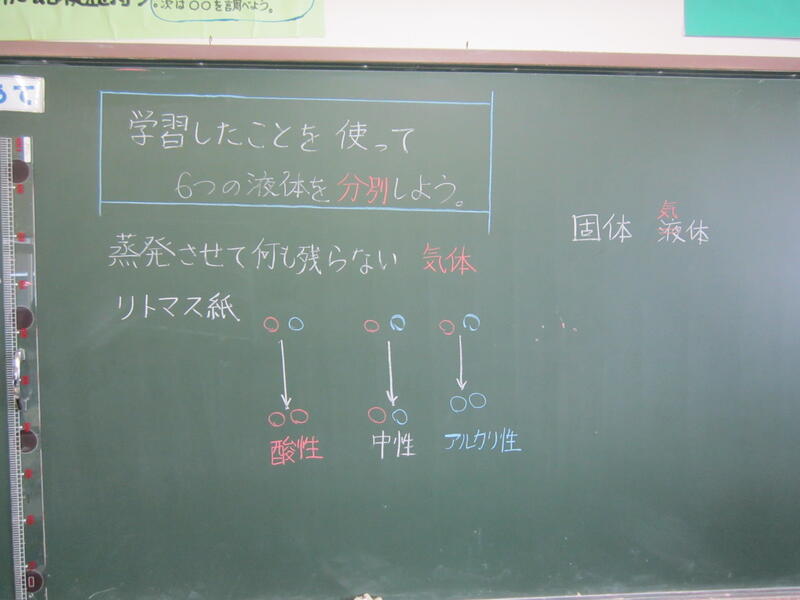 次は〇〇を調べよう。
学習したことを 使って
6つの液体を分別しよう。
蒸発させて何も残らない 気体
固体 液体
気
リトマス紙
酸性 中性 アルカリ性